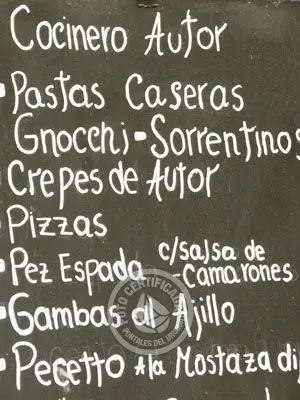 Cocinero Autor
• Pastas Caseras
Gnocchi - Sorrentinos
Crepes de Autor
• Pizzas
• Pez Espada c/salsa de
- Camarones
• Gambas al Ajillo
• Pecetto A la Mostaza di
FOTO CERTIFICADA
PORTALES DEL URUGUAY